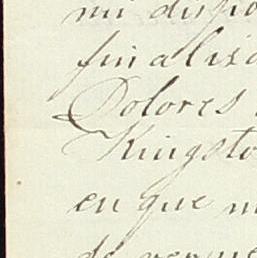 mi dispo
finaliza
Dolores
Kingsto
en que m